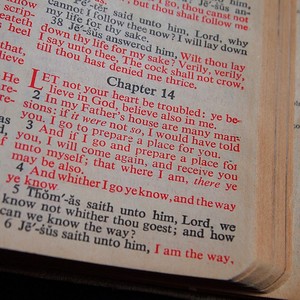 ou shalt follow me
him, Lord, why
cannot I follow thee now? I will lay down
38 Jē´-s̆us answered him, Wilt thou lay
down thy life for my sake? Verily, verily,
I say unto thee, The cock shall not crow,
till thou hast denied me thrice.
Chapter 14
LET not your heart be troubled: ye be-
lieve in God, believe also in me.
2 In my Father's house are many man-
sions: if it were not so, I would have told
you. I go to prepare a place for you.
3 And if I go and prepare a place for
you, I will come again, and receive you
unto myself; that where I am, there ye
may be also.
4 And whither I go ye know, and the way
ye know.
5 Thŏm´-ăs saith unto him, Lord, we
know not whither thou goest; and how
can we know the way?
6 Jē´-s̆us saith unto him, I am the way,